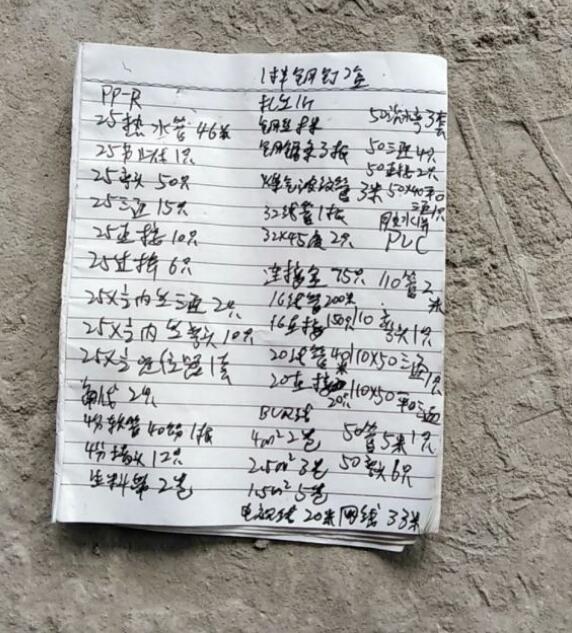 PP-R
25热水管46米
25弯头50只
25三通15只
25直接10只
25过桥6只
25×½内丝三通2只
25×½内丝弯头10只
25×½定位器1套
角线2根
4分软管40公分1根
4分堵头12只
生料带2卷
1拌钢钉2盒
扎丝1斤
钢锯条3根
煤气波纹管3米
32线管1根
32×45度2只
连接盒75只
16线管200米
16直接150只
20线管40米
20直接20只
BVR线
4m²2卷
2.5m²3卷
1.5m²5卷
电视线20米 网线33米
50三通4只
50直接2只
50×40平
三通1只
胶水1
PVC
110管2
米
110弯
头1只
110×50三通1只
110×50平三通
50管5米1只
50弯头6只